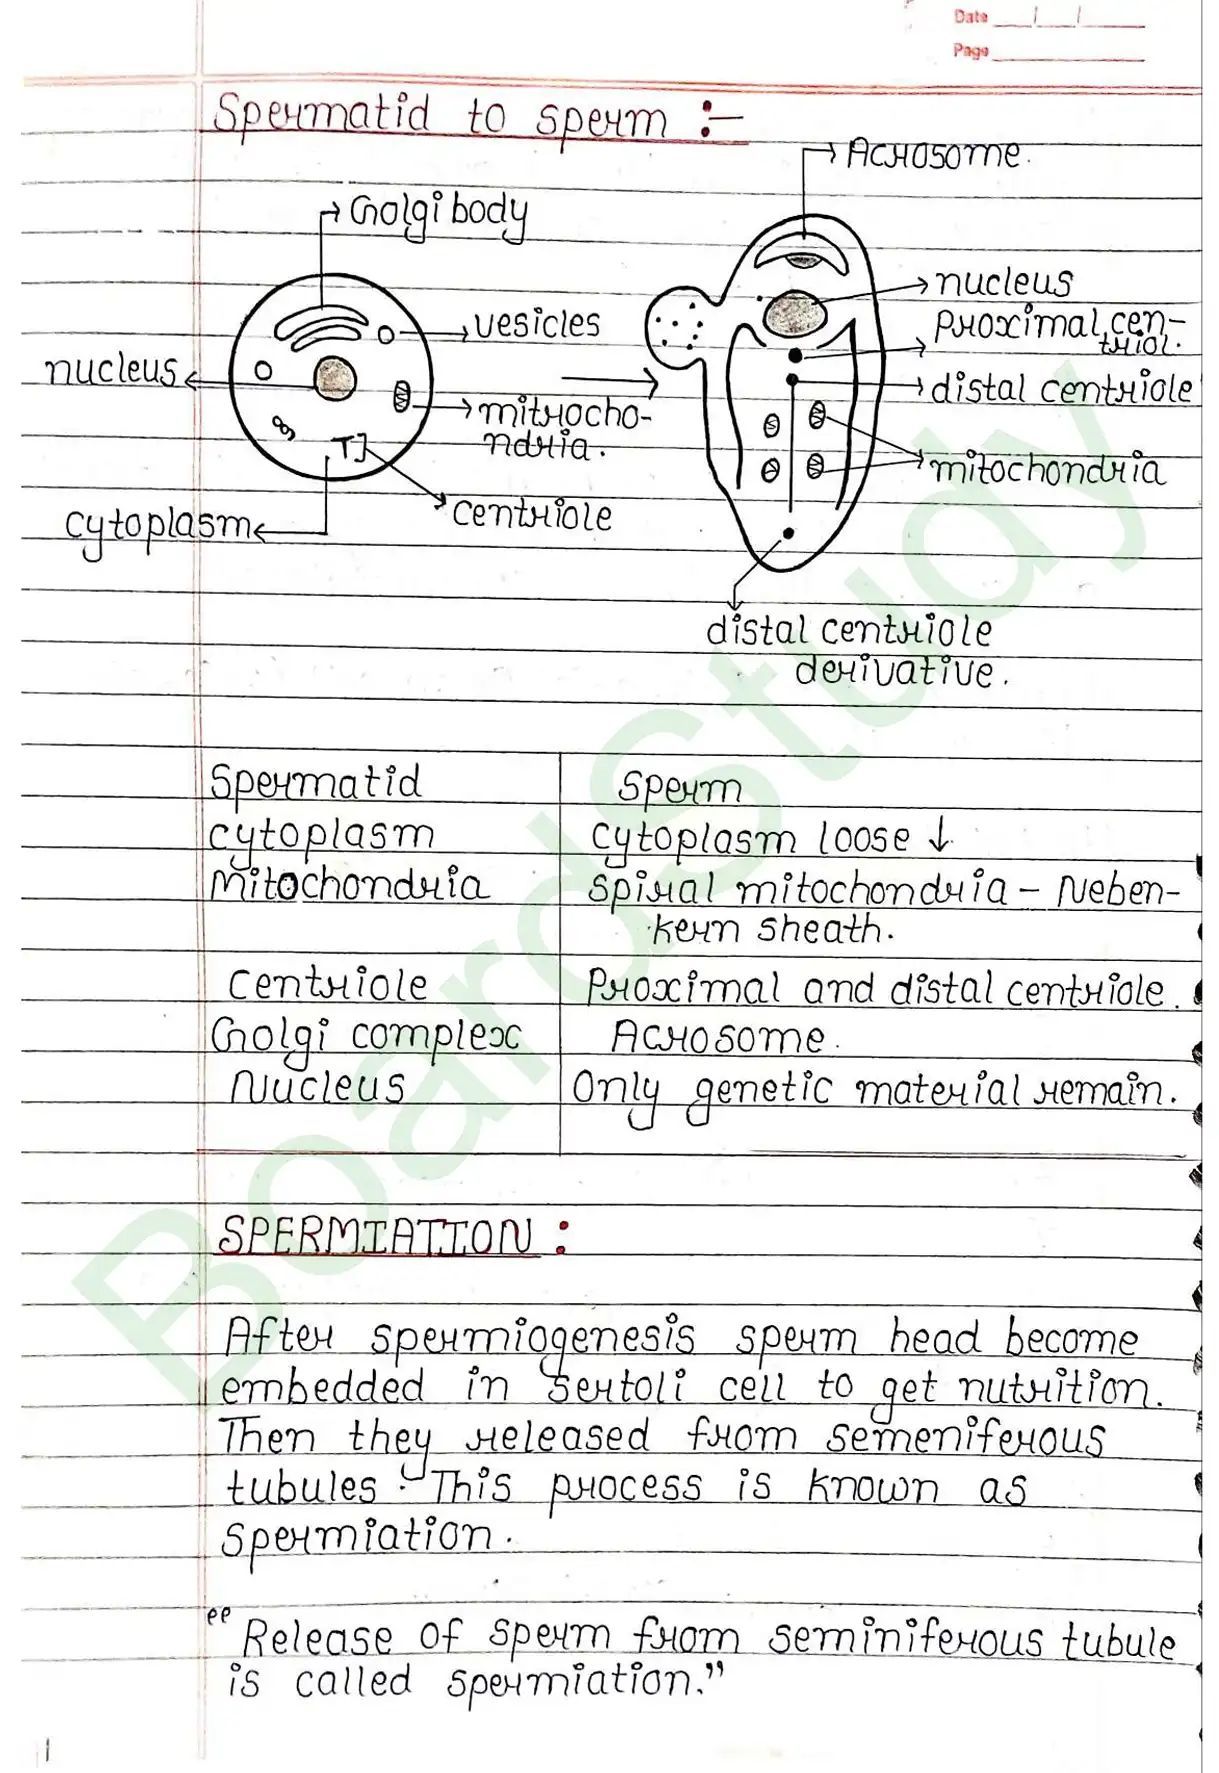 Date __/__/__
Page
Spermatid to sperm :-
Acrosome.
Golgi body
nucleus
vesicles
Proximal cen-
triol.
nucleus
distal centriole
mitocho-
ndria.
mitochondria
centriole
cytoplasm
distal centriole
derivative.
Spermatid Sperm
cytoplasm cytoplasm loose ↓
Mitochondria Spiral mitochondria - Neben-
kern sheath.
Centriole Proximal and distal centriole.
Golgi complex Acrosome.
Nucleus Only genetic material remain.
SPERMIATION :
After spermiogenesis sperm head become
embedded in Sertoli cell to get nutrition.
Then they released from semeniferous
tubules. This process is known as
spermiation.
"Release of sperm from seminiferous tubule
is called spermiation."
BoardStudy